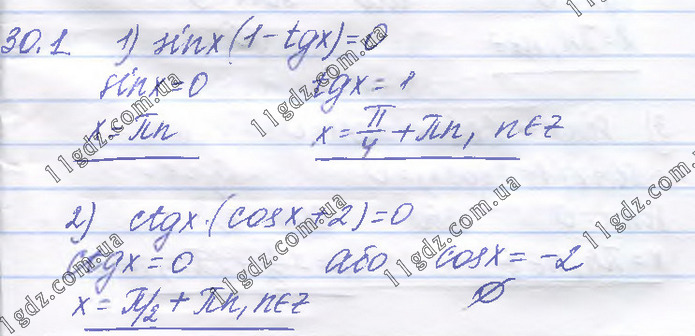 30.1 1) sinx(1-tgx)=0
sinx=0 tgx=1
x=πn x=π/4+πn, n∈Z
2) ctgx·(cosx+2)=0
ctgx=0 або cosx=-2
x=π/2+πn, n∈Z ∅
11gdz.com.ua
11gdz.com.ua
11gdz.com.ua
11gdz.com.ua
11gdz.com.ua
11gdz.com.ua